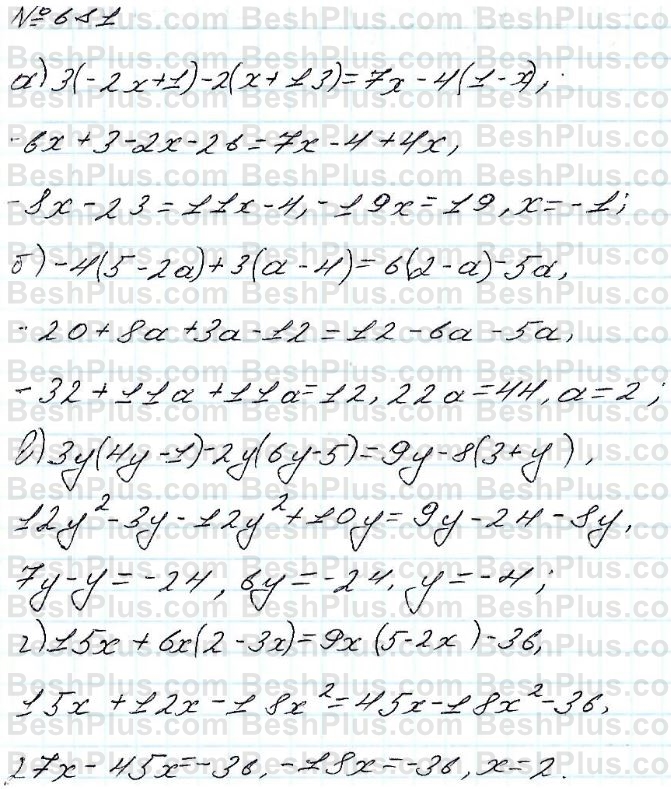 №681
а) 3(-2x+1)-2(x+13)=7x-4(1-x);
-6x+3-2x-26=7x-4+4x,
-8x-23=11x-4, -19x=19, x=-1;
б) -4(5-2a)+3(a-4)=6(2-a)-5a,
-20+8a+3a-12=12-6a-5a,
-32+11a+11a=12, 22a=44, a=2;
в) 3y(4y-1)-2y(6y-5)=9y-8(3+y),
12y²-3y-12y²+10y=9y-24-8y,
7y-y=-24, 6y=-24, y=-4;
г) 15x+6x(2-3x)=9x(5-2x)-36,
15x+12x-18x²=45x-18x²-36,
27x-45x=-36, -18x=-36, x=2.